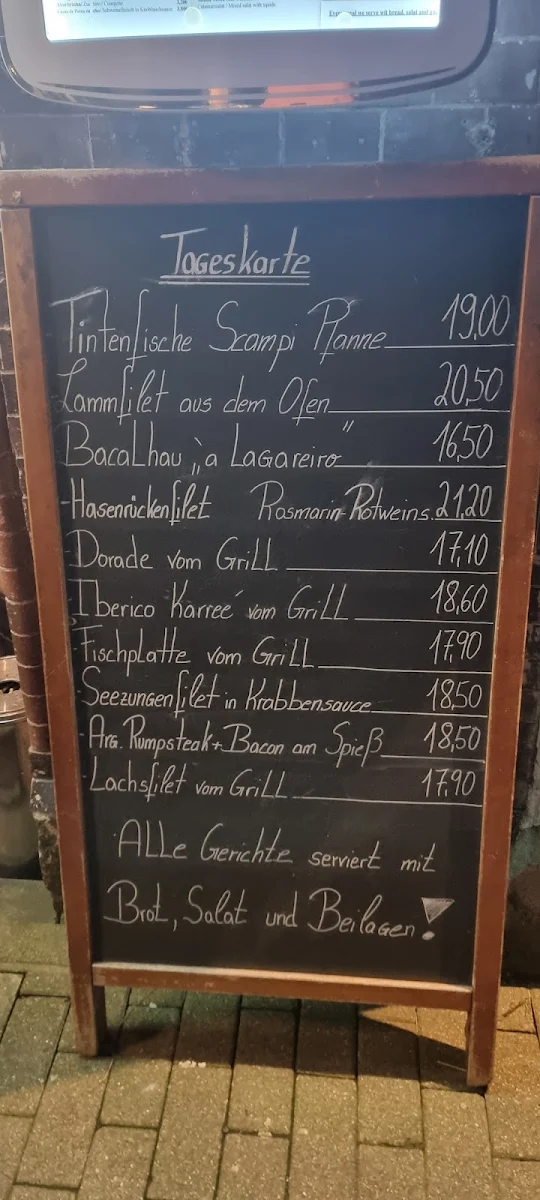 Tageskarte
Tintenfische Scampi Pfanne 19,00
Lammfilet aus dem Ofen 20,50
Bacalhau „à Lagareiro" 16,50
Hasenrückenfilet Rosmarin-Rotweins. 21,20
Dorade vom Grill 17,10
Iberico Karreé vom Grill 18,60
Fischplatte vom Grill 17,90
Seezungenfilet in Krabbensauce 18,50
Arg. Rumpsteak + Bacon am Spieß 18,50
Lachsfilet vom Grill 17,90
Alle Gerichte serviert mit
Brot, Salat und Beilagen!